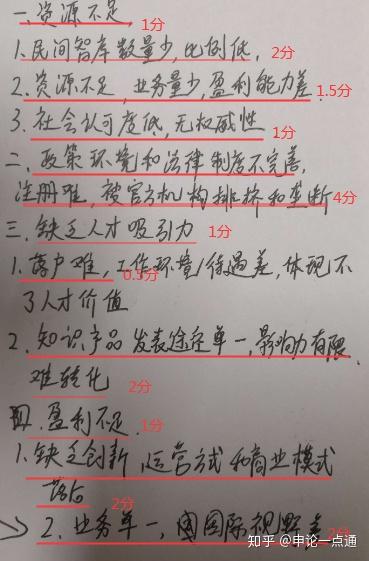 一、资源不足, 1分
1.民间智库数量少,比例低, 2分
2.资源不足,业务量少,盈利能力差. 1.5分
3.社会认可度低,无权威性 1分
二、政策环境和法律制度不完善,
注册难,被官方机构排挤和垄断 4分
三、缺乏人才吸引力 1分
1.落户难,工作环境/待遇差,体现不 0.5分
了人才价值
2.知识产品发表途径单一,影响力有限,
难转化 2分
四、盈利不足 1分
1.缺乏创新,运营方式和商业模式
落后 2分
2、业务单一,国际视野差 2分
知乎 @申论一点通